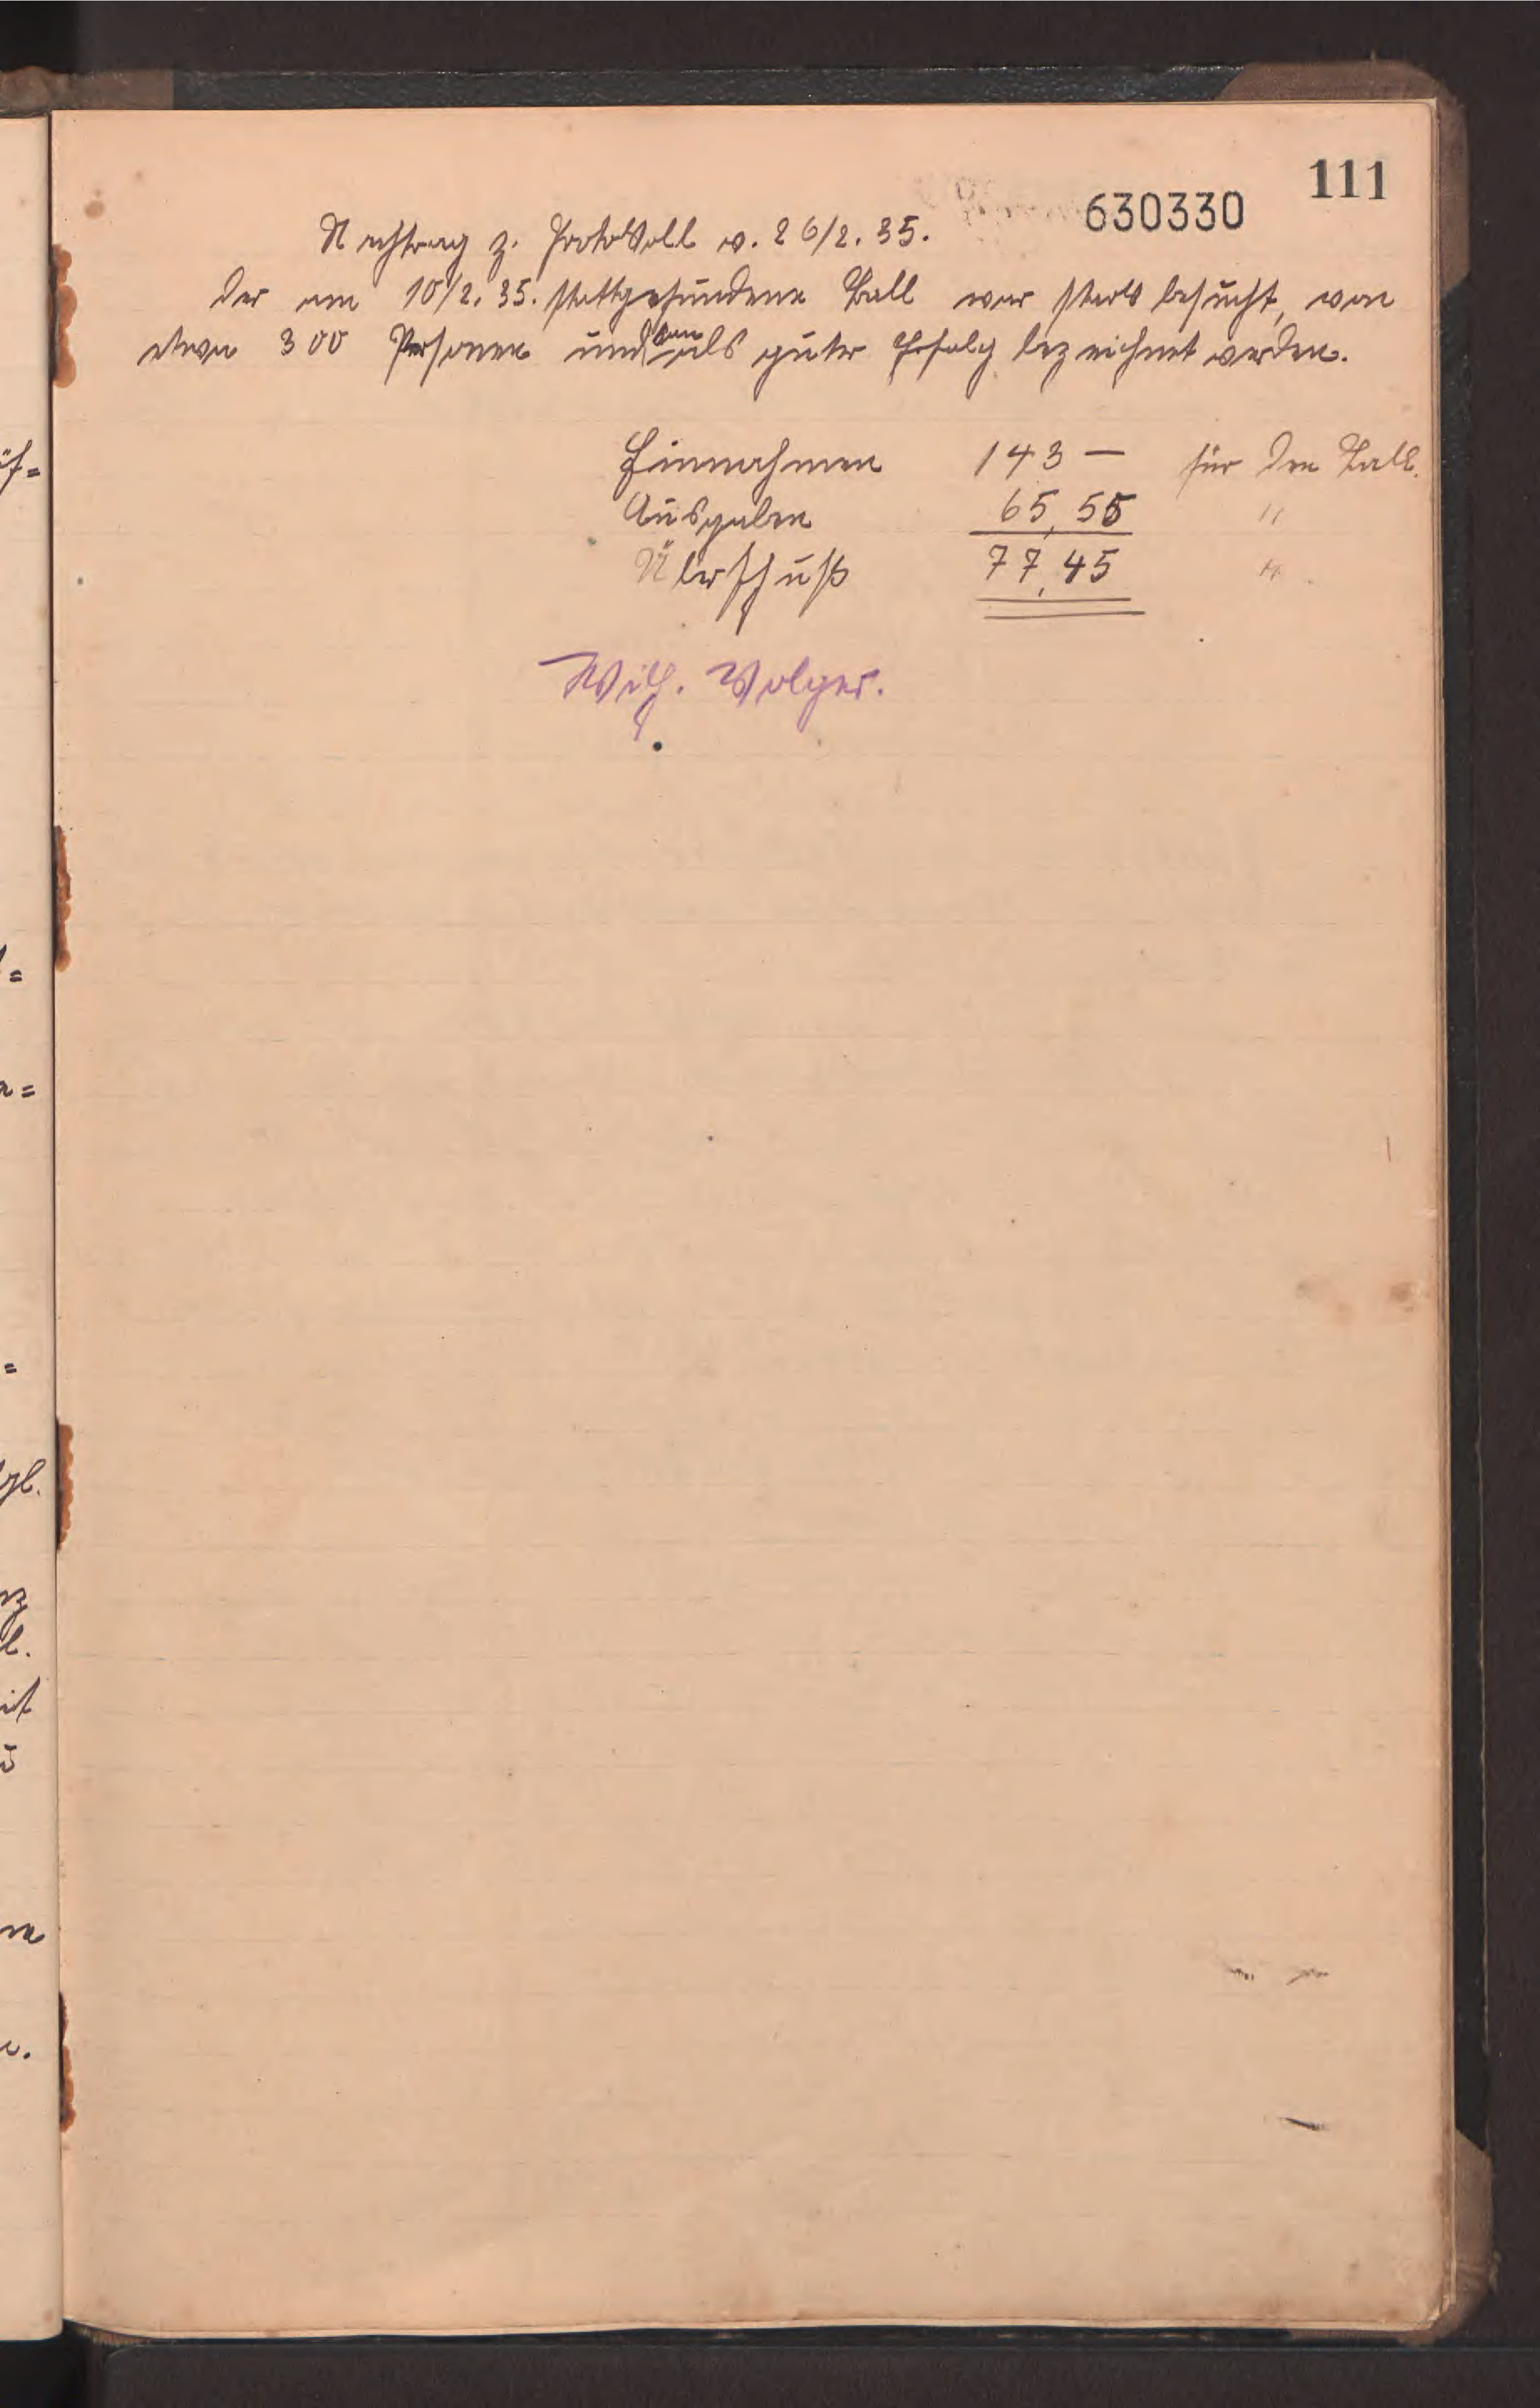 111
630330
Nachtrag z. Protokoll v. 26/2. 35.
Der am 10/2. 35. stattgefundene Ball war stark besucht, von
etwa 300 Personen und kann als guter Erfolg bezeichnet werden.
Einnahmen 143 — für den Ball.
Ausgaben 65,55 "
Überschuß 77,45 "
Wilh. Wolger.